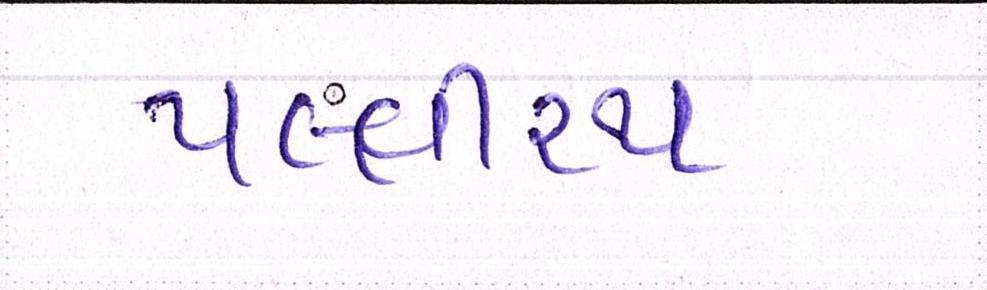 પલ્લીરથ